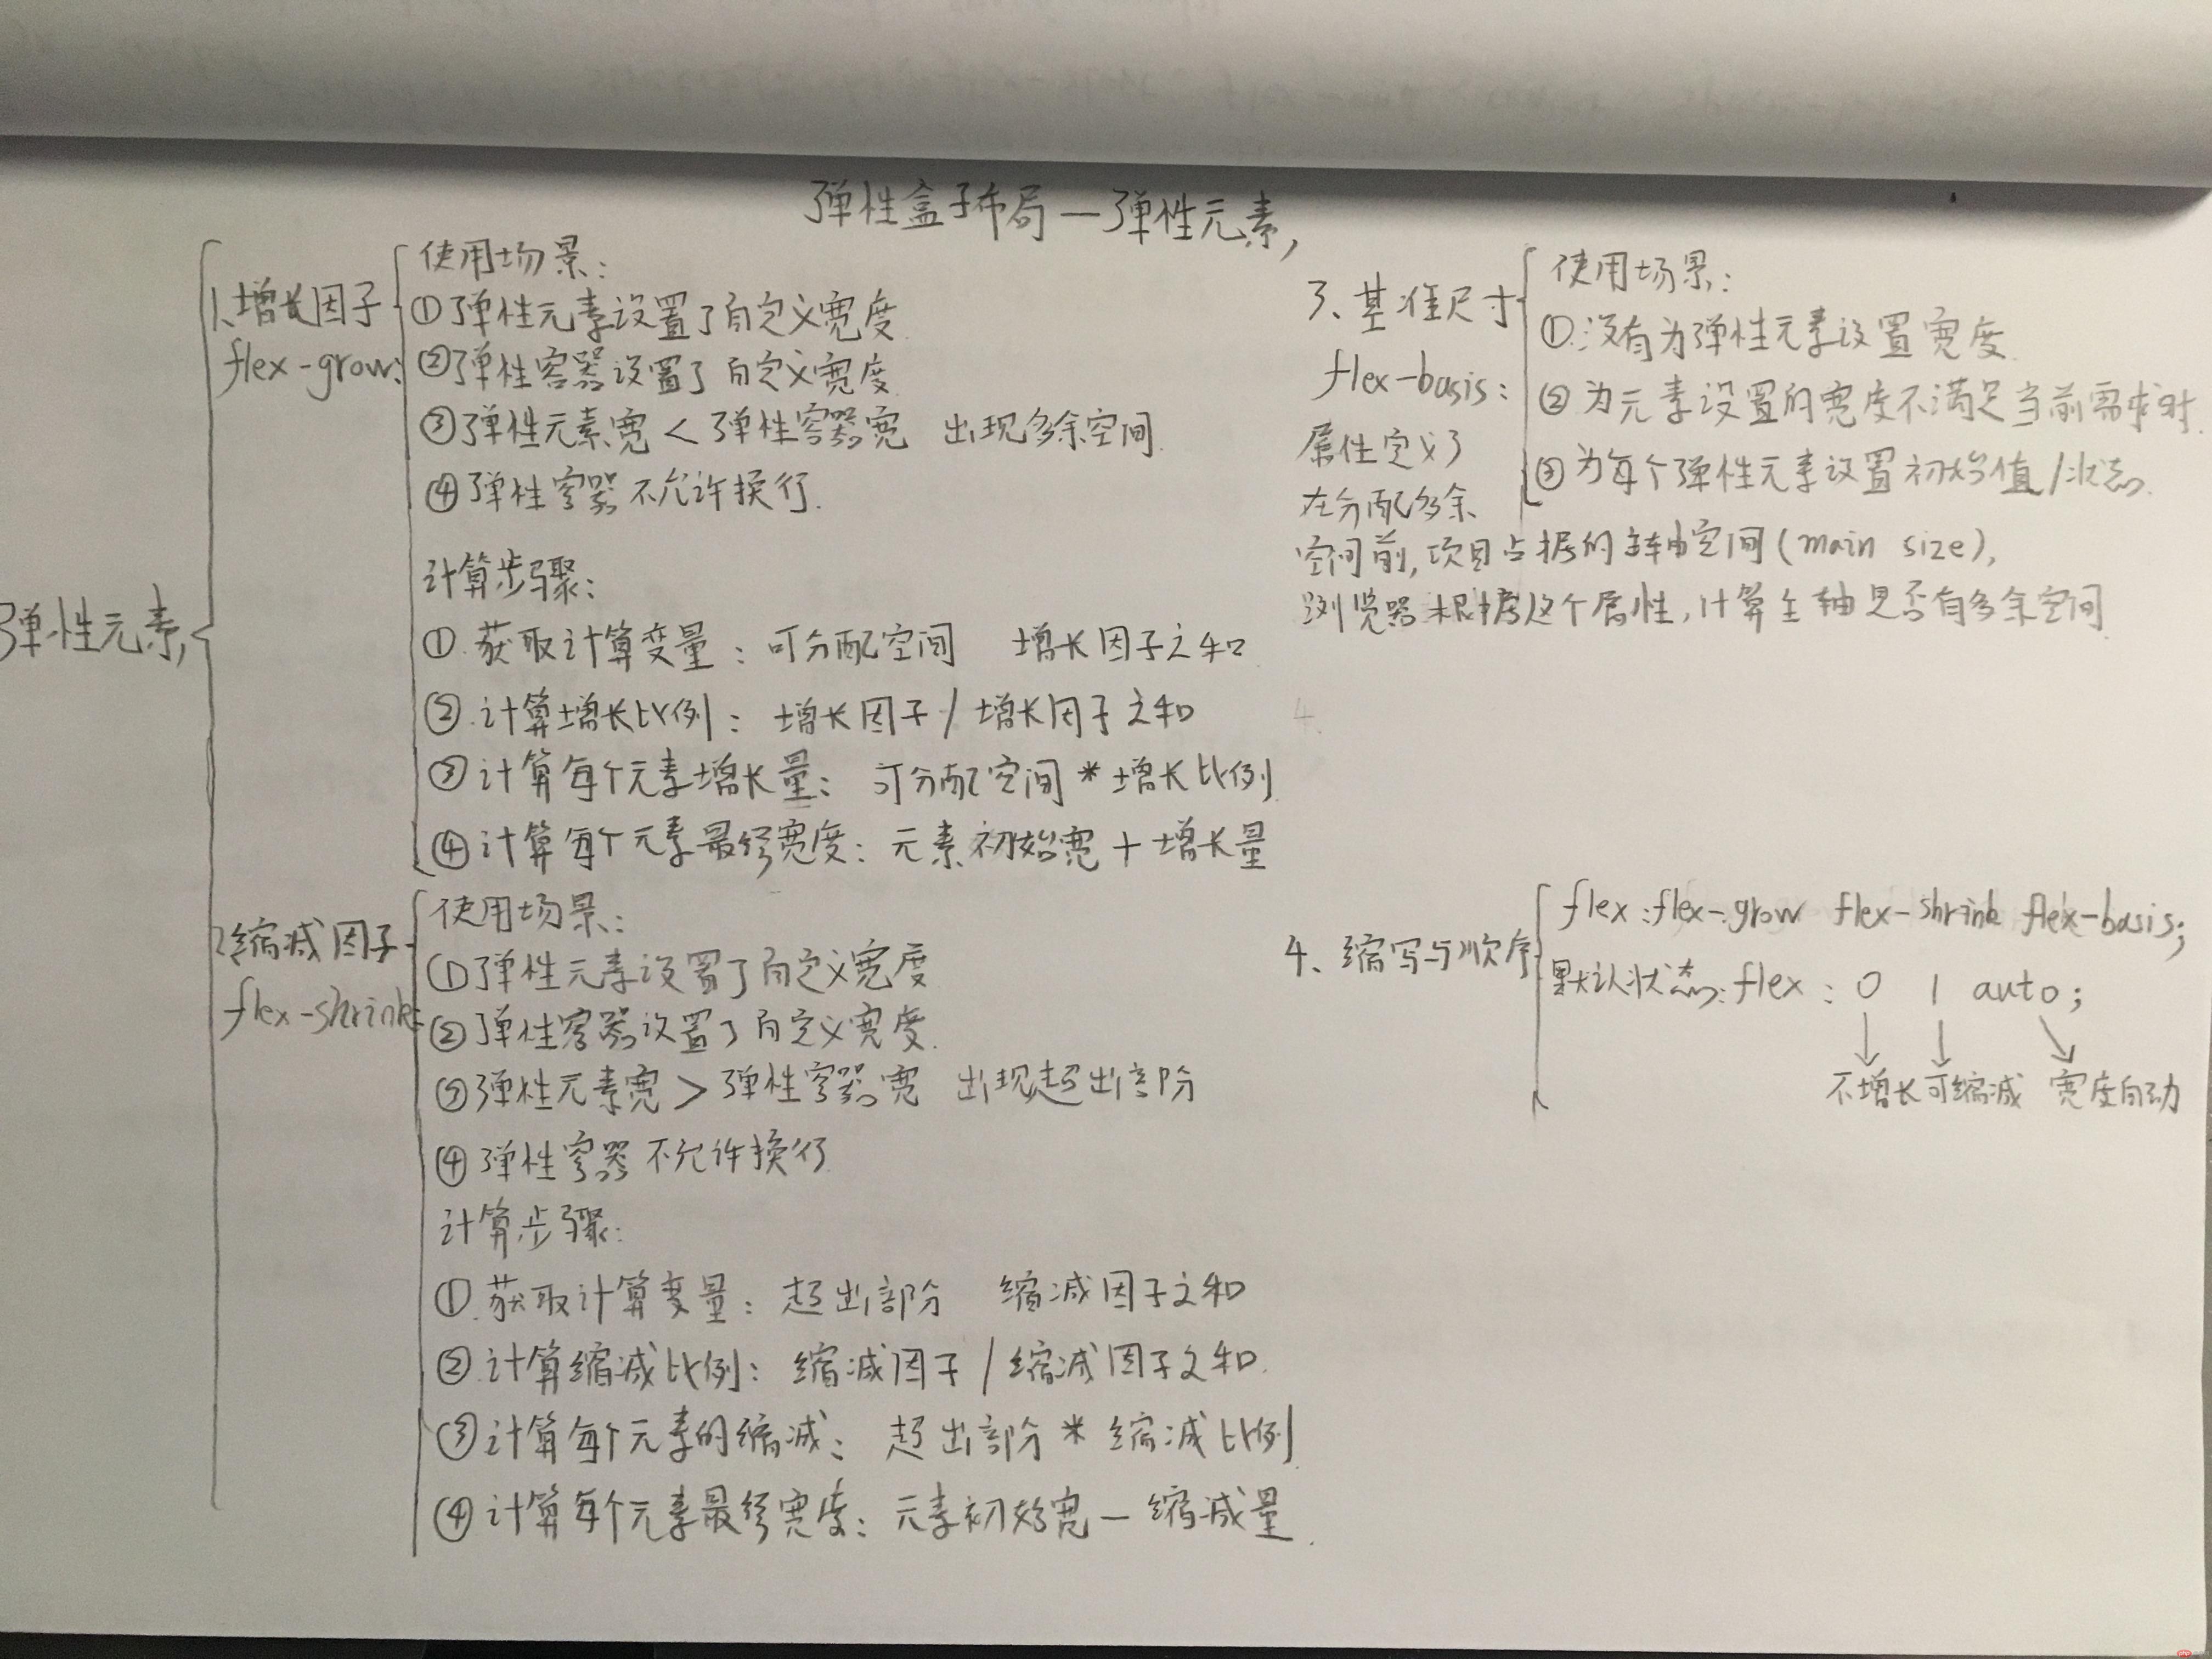 弹性盒子布局—弹性元素
弹性元素
1、增长因子
flex-grow:
使用场景:
①弹性元素设置了自定义宽度
②弹性容器设置了自定义宽度
③弹性元素宽 < 弹性容器宽 出现多余空间.
④弹性容器不允许换行.
计算步骤:
①.获取计算变量: 可分配空间 增长因子之和
②.计算增长比例: 增长因子 / 增长因子之和
③计算每个元素增长量: 可分配空间 * 增长比例
④计算每个元素最终宽度: 元素初始宽 + 增长量
2缩减因子
flex-shrink:
使用场景:
①弹性元素设置了自定义宽度
②弹性容器设置了自定义宽度.
③弹性元素宽 > 弹性容器宽 出现超出部份
④弹性容器不允许换行
计算步骤:
①.获取计算变量: 超出部份 缩减因子之和
②.计算缩减比例: 缩减因子 / 缩减因子之和.
③计算每个元素的缩减: 超出部份 * 缩减比例
④计算每个元素最终宽度: 元素初始宽 — 缩减量.
3、基准尺寸
flex-basis:
使用场景:
①.没有为弹性元素设置宽度.
②为元素设置的宽度不满足当前需求时.
③为每个弹性元素设置初始值/状态.
属性定义了
在分配多余
空间前,项目占据的主轴空间(main size),
浏览器根据这个属性,计算主轴是否有多余空间
4.
4、缩写与顺序
flex:flex-grow flex-shrink flex-basis;
默认状态:flex: 0 1 auto;
不增长 可缩减 宽度自动
php